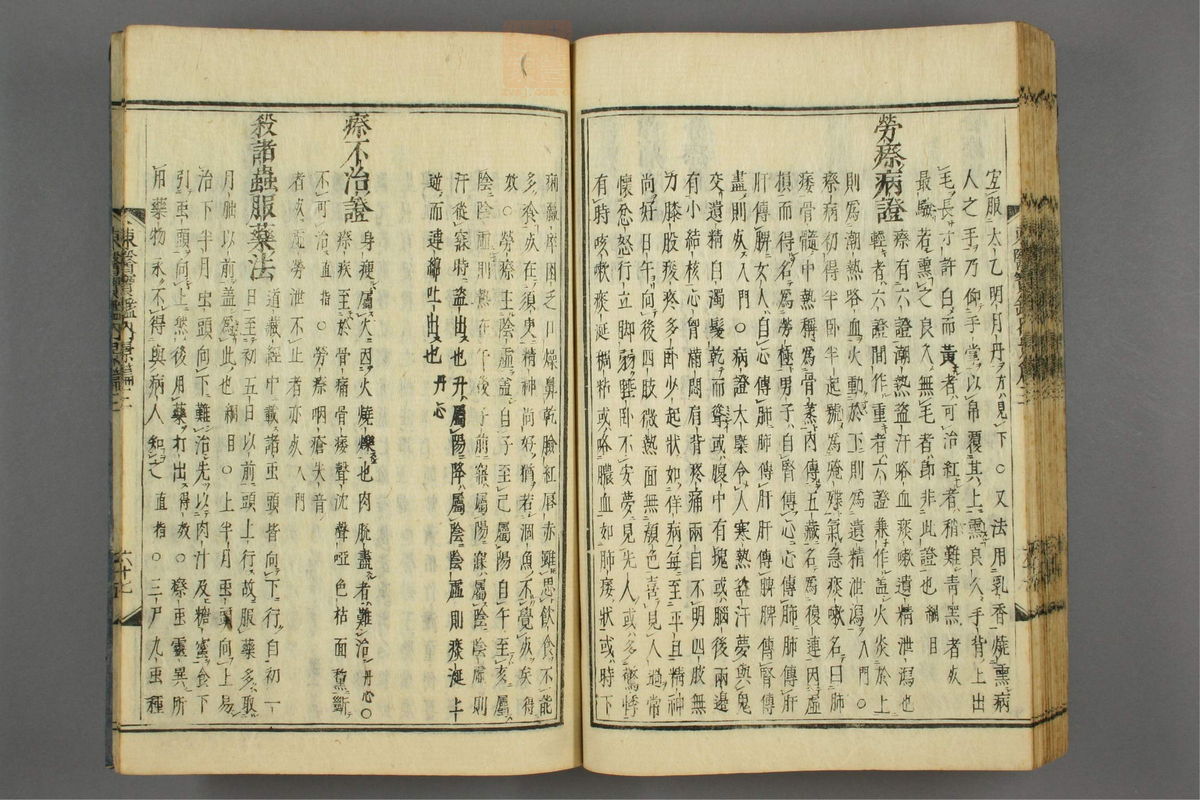 宜服太乙明月丹方見下○又法用乳香燒熏病
人之手乃仰手掌以帛覆其上熏良久手背上出
毛長寸許白而黃者可治紅者稍難青黑者死
最驗若熏之良久無毛者卽非此證也綱目
勞瘵病證
瘵有六證潮熱盜汗咯血痰嗽遺精泄瀉也
輕者六證間作重者六證兼作盖火炎於上
則爲潮熱咯血火動於下則爲遺精泄瀉入門○
瘵病初得半臥半起號爲殗殜氣急痰嗽名曰肺
痿骨髓中熱稱爲骨蒸內傳五藏名爲復連因虛
損而得名爲勞極男子自腎傳心心傳肺肺傳肝
肝傳脾女人自心傳肺肺傳肝肝傳脾脾傳腎傳
盡則死入門○病證大槩令人寒熱盜汗夢與鬼
交遺精白濁髮乾而聳或腹中有塊或腦後兩邊
有小結核心胷滿悶肩背疼痛兩目不明四肢無
力膝股痠疼多臥少起狀如佯病每至平旦精神
尚好日午向後四肢微熱面無顔色喜見人過常
懷忿怒行立脚弱睡臥不安夢見先人或多驚悸
有時咳嗽痰涎稠粘或咯膿血如肺痿狀或時下
痢羸瘁困乏口燥鼻乾臉紅唇赤雖思飮食不能
多飡死在須臾精神尚好猶若涸魚不覺死矣得
效○勞瘵主陰虛盖自子至巳屬陽自午至亥屬
陰陰虛則熱在午後子前寤屬陽寐屬陰陰虛則
汗從寐時盜出也升屬陽降屬陰陰虛則痰涎上
逆而連綿吐出也丹心
瘵不治證
身瘦屬火因火燒爍也肉脫盡者難治丹心○
瘵疾至於骨痛骨痿聲沈聲啞色枯面黧斷
不可治直指○勞瘵咽瘡失音
者死虛勞泄不止者亦死入門
殺諸蟲服藥法
道藏經中載諸虫頭皆向下行自初一
日至初五日以前頭上行故服藥多取
月朏以前盖爲此也綱目○上半月虫頭向上易
治下半月虫頭向下難治先以肉汁及糖蜜食下
引虫頭向上然後用藥打出得效○瘵虫靈異所
用藥物永不得與病人知之直指○三尸九虫種
東醫寶鑑內景篇三
六十七